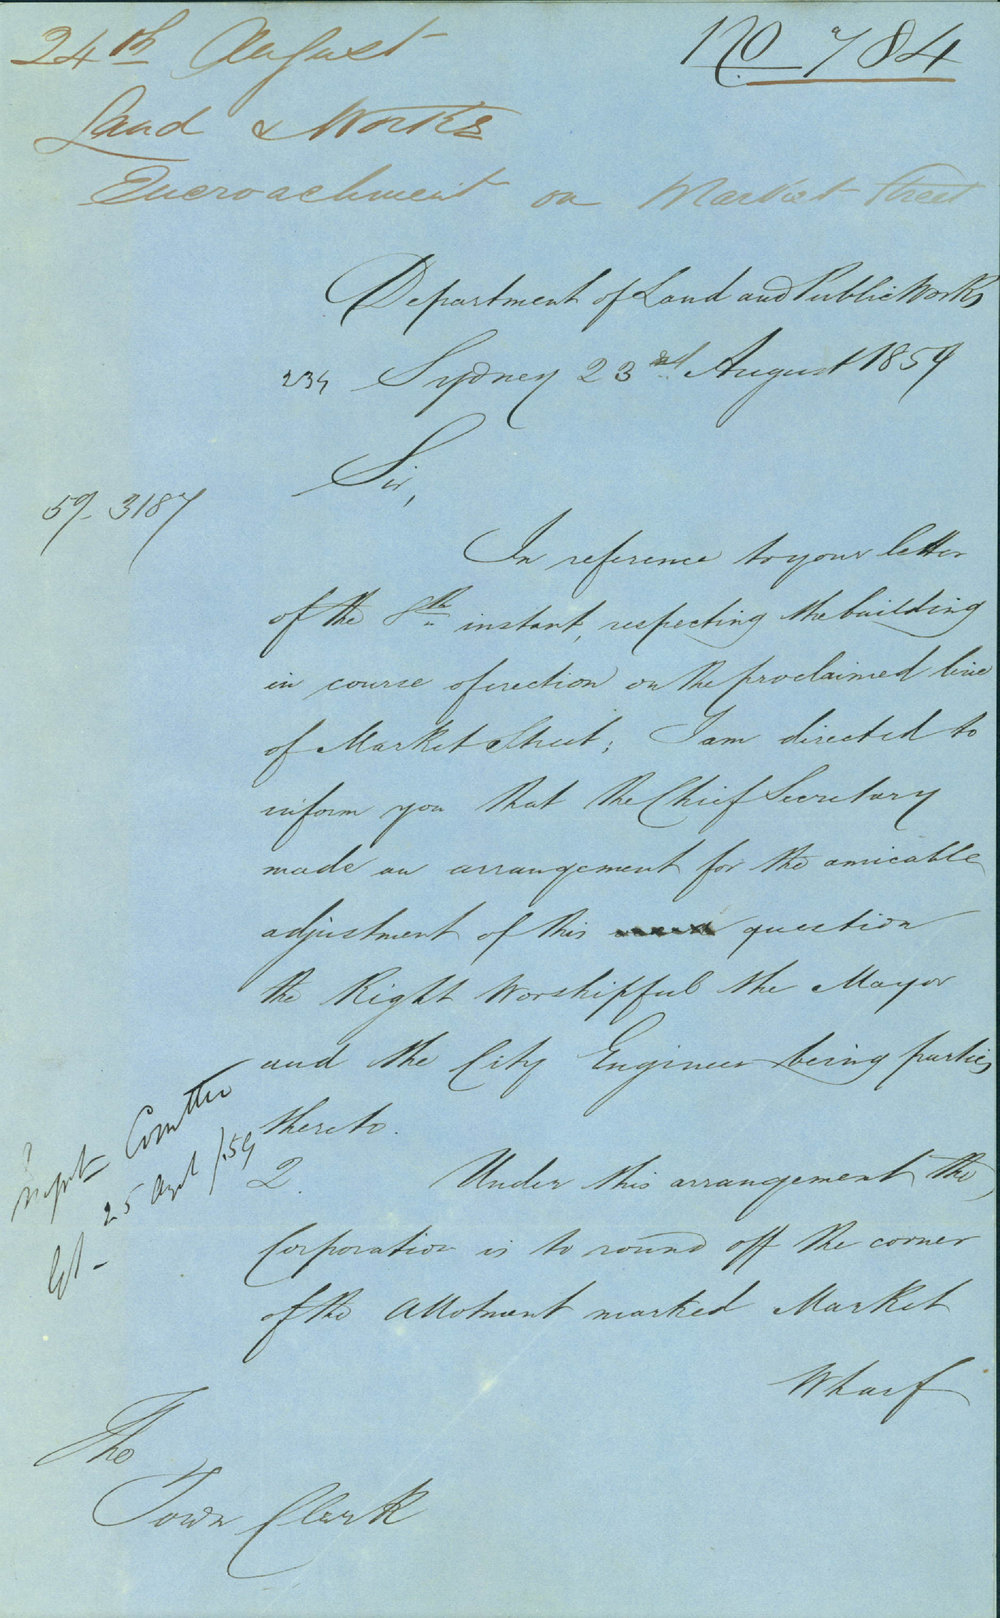 24th August
No 784
Land & Works
Encroachment on Market Street
Department of Land and Public Works
234 Sydney 23rd August 1859
Sir,
59-3187
In reference to your letter
of the 8th instant, respecting the building
in course of erection on the proclaimed line
of Market Street; I am directed to
inform you that the Chief Secretary
made an arrangement for the amicable
adjustment of this question
the Right Worshipful the Mayor
and the City Engineer being parties
thereto.
Impt Comttee
25 Augt /59
2. Under this arrangement the
Corporation is to round off the corner
of the Allotment marked Market
Wharf
The
Town Clerk